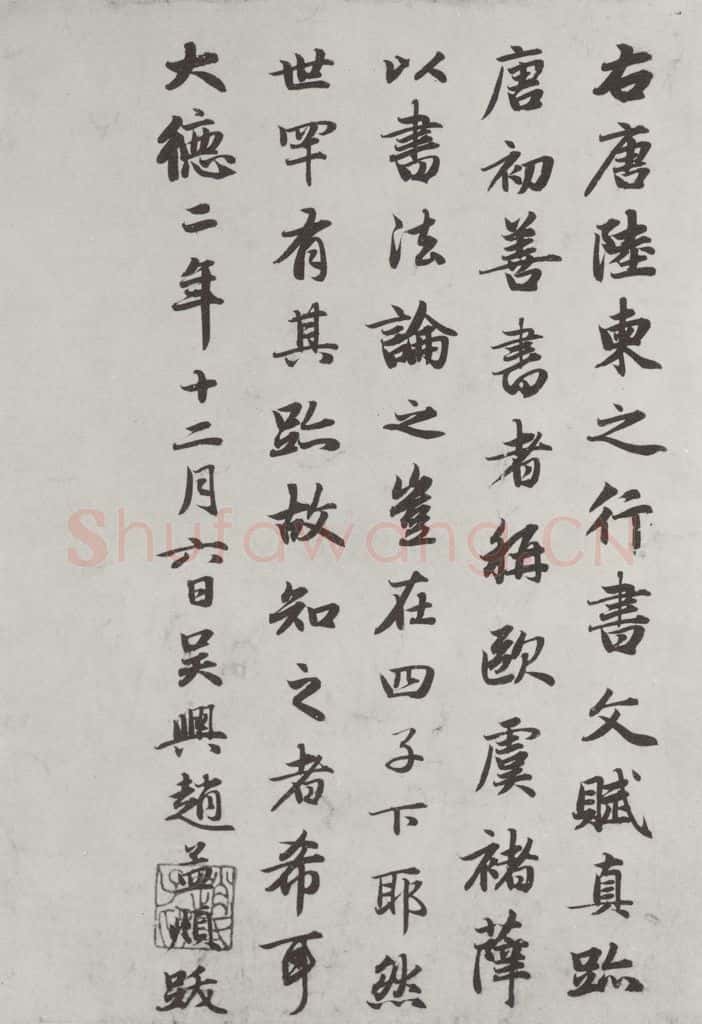 右唐陸柬之行書文賦真跡
唐初善書者稱歐虞褚薛
以書法論之豈在四子下耶然
世罕有其跡故知之者希耳
大德二年十二月六日吳興趙孟頫跋
Shufawang.CN